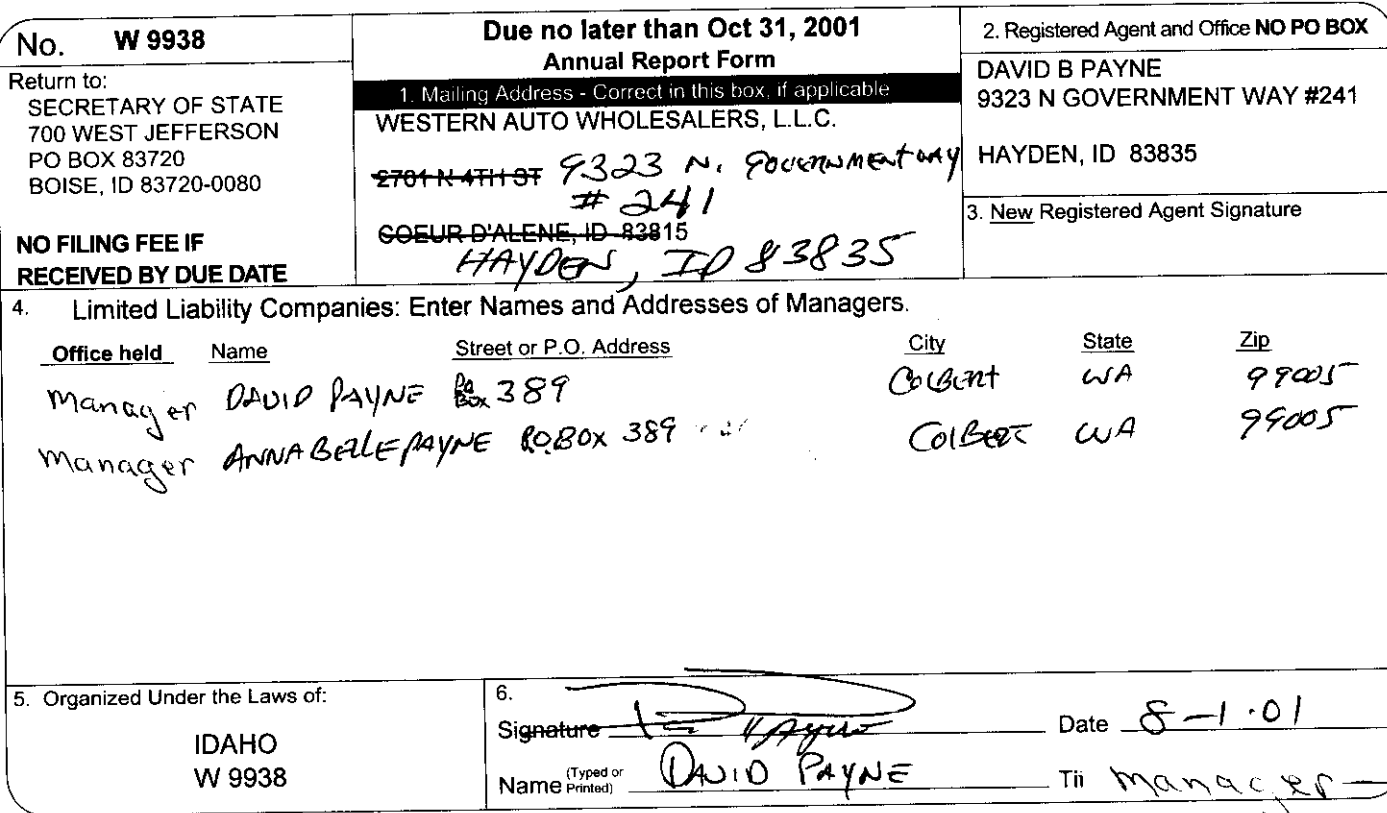 No. W 9938
Return to:
SECRETARY OF STATE
700 WEST JEFFERSON
PO BOX 83720
BOISE, ID 83720-0080
NO FILING FEE IF
RECEIVED BY DUE DATE
Due no later than Oct 31, 2001
Annual Report Form
1. Mailing Address - Correct in this box, if applicable
WESTERN AUTO WHOLESALERS, L.L.C.
2701 N 4TH ST 9323 N. GOVERNMENT WAY
# 241
COEUR D'ALENE, ID 83815
HAYDEN, ID 83835
2. Registered Agent and Office NO PO BOX
DAVID B PAYNE
9323 N GOVERNMENT WAY #241
HAYDEN, ID 83835
3. New Registered Agent Signature
4. Limited Liability Companies: Enter Names and Addresses of Managers.
Office held Name Street or P.O. Address City State Zip
Manager DAVID PAYNE PO Box 389 COLBERT WA 99005
Manager ANNABELLE PAYNE P.O. BOX 389 COLBERT WA 99005
5. Organized Under the Laws of:
IDAHO
W 9938
6.
Signature Payne Date 8-1-01
Name (Typed or Printed) DAVID PAYNE Tii Manager